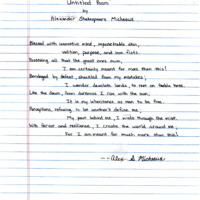 Untitled Poem
by
Alexander Shakespeare Micheaux
Blessed with inventive mind, impenetrable skin,
volition, purpose, and iron fists.
Possessing all that the great ones own,
I am certainly meant for more than this!
Bandaged by defeat, shackled from my mistakes,
I wander desolate lands, to rest on feeble trees.
Like the dawn, from darkness I rise with the sun;
It is my inheritance as man to be free.
Perceptions, refusing to let another's define me,
My past behind me, I wrote through the mist.
With fervor and resilience, I create the world around me,
For I am meant for much more than this!
---Alex S Micheaux